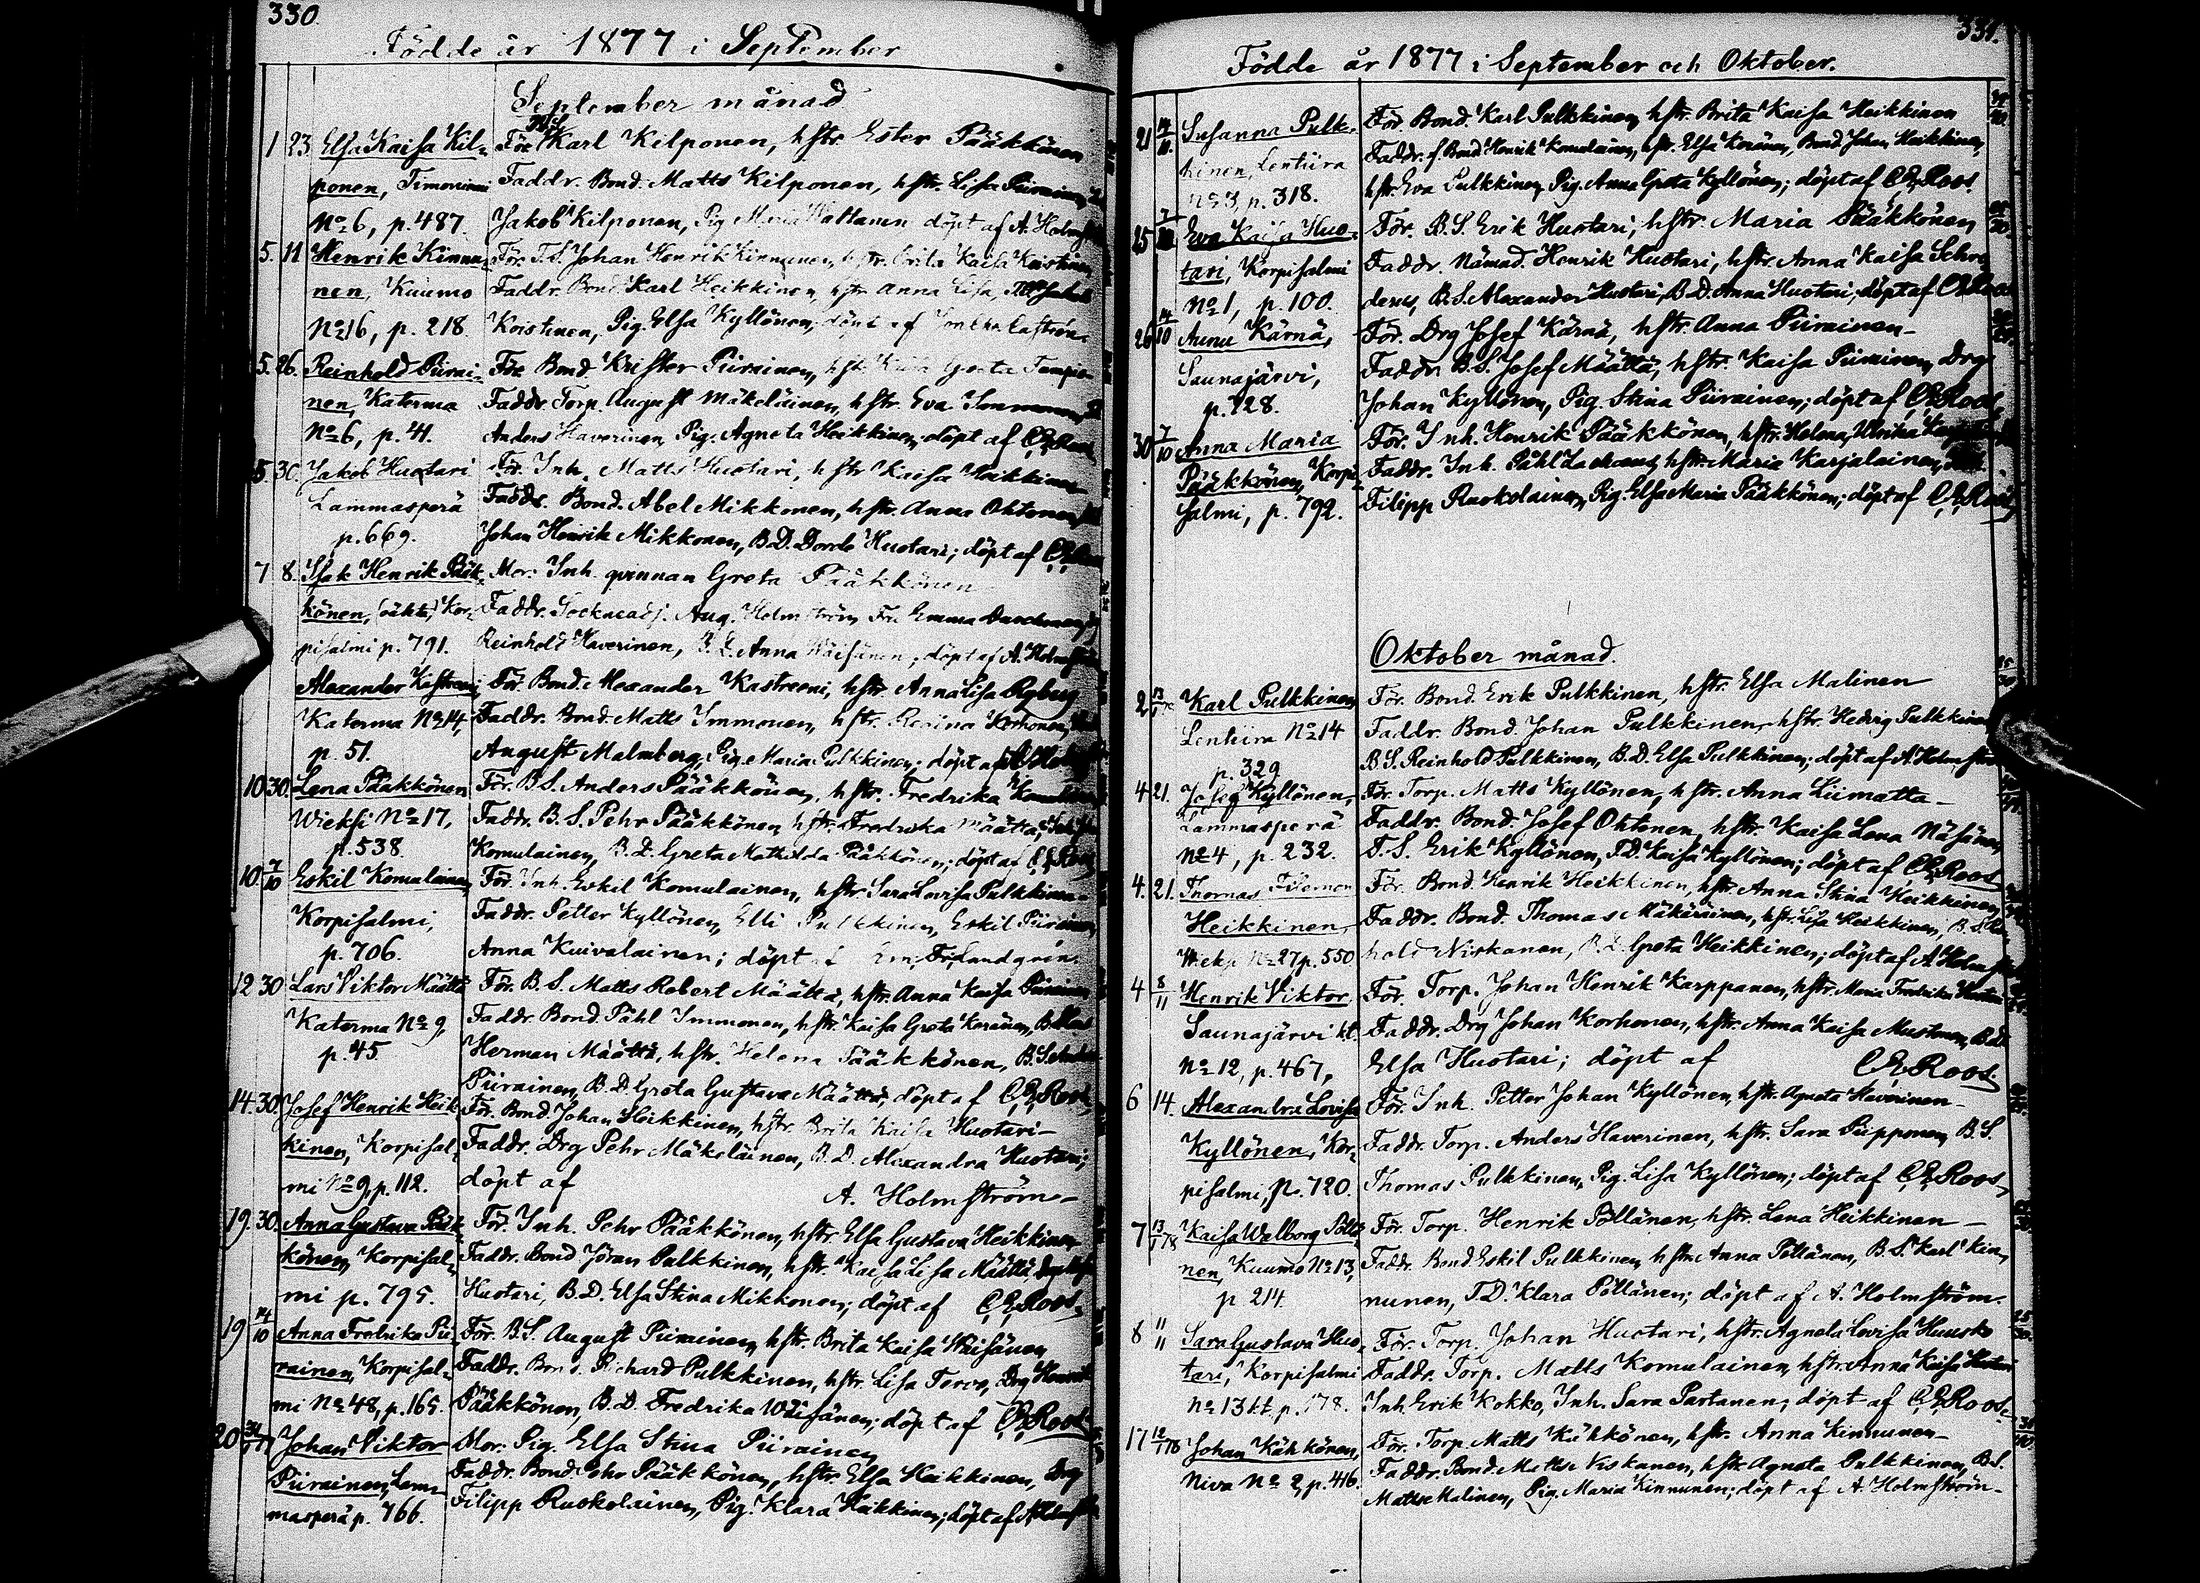 330.
Födde år 1877 i September
September månad
1 23. Elsa Kaisa Kil= För. Karl Kilponen, hstr. Ester Pääkkönen
ponen, Timoniemi Faddr. Bond. Matts Kilponen, hstr. Lisa Piirainen,
No 6, p. 487. Jakob Kilponen, Pig. döpt af A. Holmström
5. 11 Henrik Kinnu= För. T.S. Johan Henrik Kinnunen, hstr. Brita Kaisa Koistinen
nen, Kuumo Faddr. Bond. Karl Heikkinen, hstr. Anna Lisa,
No 16, p. 218 Koistinen, Pig. Elsa Kyllönen, döpt af
5. 26. Reinhold Piirai= För. Bond. Krister Piirainen, hstr. Greta
nen, Katerma Faddr. Torp. August Mäkeläinen, hstr. Eva Immonen,
No 6, p. 41. Anders Haverinen, Pig. Agneta Heikkinen, döpt af C.E. Roos
5 30. Jakob Huotari För. Inh. Matts Huotari, hstr. Kaisa Heikkinen
Lammasperä Faddr. Bond. Abel Mikkonen, hstr. Anna Ohtonen,
p. 669. Johan Henrik Mikkonen, B.D. Huotari; döpt af C.E. Roos
7 8. Isak Henrik Pääk= Mor: Inh. qvinnan Greta Pääkkönen
könen, (oäkta) Kor= Faddr. Aug. Holmström, Emma
pisalmi p. 791. Reinhold Haverinen, B.D. Anna Väisänen, döpt af A. Holmström
Alexander Kastreeni För. Bond. Alexander Kastreeni, hstr. Anna Lisa Ryberg
Katerma No 14, Faddr. Bond. Matts Immonen, hstr. Regina Korhonen,
p. 51. August Malmberg, Pig. Maria Pulkkinen; döpt af A. Holmström
10 30. Lena Pääkkönen För. B.S. Anders Pääkkönen, hstr. Fredrika Komulainen
Wieksi No 17, Faddr. B.S. Pehr Pääkkönen, hstr. Fredrika Määttä,
p. 538. Komulainen, B.D. Greta Mathilda Pääkkönen; döpt af C.E. Roos
10 7/10 Eskil Komulainen För. Inh. Eskil Komulainen, hstr. Sara Lovisa Pulkkinen
Korpisalmi, Faddr. Petter Kyllönen, Elli Pulkkinen, Eskil Piirainen
p. 706. Anna Kuivalainen; döpt af
12 30 Lars Viktor Määttä För. B.S. Matts Robert Määttä, hstr. Anna Kaisa Piirainen
Katerma No 9, Faddr. Bond. Påhl Immonen, hstr. Kaisa Greta Keränen,
p. 45 Herman Määttä, hstr. Helena Pääkkönen, B.S.
Piirainen, B.D. Greta Gustava Määttä, döpt af C.E. Roos
14. 30. Josef Henrik Heik= För. Bond. Johan Heikkinen, hstr. Brita Kaisa Huotari
kinen, Korpisal= Faddr. Drg Pehr Mäkeläinen, B.D. Alexandra Huotari;
mi No 9, p. 112. döpt af A. Holmström
19. 30. Anna Gustava Pääk= För. Inh. Pehr Pääkkönen, hstr. Elsa Gustava Heikkinen
könen, Korpisal= Faddr. Bond Jöran Pulkkinen, hstr. Kaisa Lisa Määttä,
mi p. 795. Huotari, B.D. Elsa Stina Mikkonen; döpt af C.E. Roos
19 14/10 Anna Fredrika Pii= För. B.S. August Piirainen, hstr. Brita Kaisa Väisänen
rainen, Korpisal= Faddr. Bond. Richard Pulkkinen, hstr. Lisa Torvo, Drg Henrik
mi No 48, p. 165. Pääkkönen, B.D. Fredrika Väisänen; döpt af C.E. Roos
20 Johan Viktor Mor: Pig. Elsa Stina Piirainen
Piirainen, Lam= Faddr. Bond. Pehr Pääkkönen, hstr. Elsa Heikkinen, Drg
masperä p. 766. Filipp Ruokolainen, Pig. Klara Heikkinen; döpt af A. Holmström
331.
Födde år 1877 i September och Oktober.
21 14/10. Susanna Pulk= För. Bond. Karl Pulkkinen, hstr. Brita Kaisa Heikkinen
kinen, Lentiira Faddr. f. Bond Henrik Komulainen, hstr. Elsa Keränen, Bond Johan Heikkinen,
No 3, p. 318. hstr. Eva Pulkkinen, Pig. Anna Greta Kyllönen; döpt af C.E. Roos
25 7/10 Eva Kaisa Huo= För. B.S. Erik Huotari, hstr. Maria Pääkkönen
tari, Korpisalmi Faddr. Nämnd. Henrik Huotari, hstr. Anna Kaisa Schro
No 1, p. 100. derus, B.S. Alexander Huotari, B.D. Anna Huotari, döpt af C.E. Roos
26 14/10 Anna Kärnä, För. Drg Josef Kärnä, hstr. Anna Piirainen
Saunajärvi, Faddr. B.S. Josef Määttä, hstr. Kaisa Piirainen, Drg
p. 728. Johan Kyllönen, Pig. Stina Piirainen; döpt af C.E. Roos
30 7/10 Anna Maria För. Inh. Henrik Pääkkönen, hstr. Helena Ulrika
Pääkkönen, Korpi= Faddr. Inh. Påhl hstr. Maria Karjalainen,
salmi, p. 792. Filipp Ruokolainen, Pig. Elsa Maria Pääkkönen; döpt af C.E. Roos
Oktober månad.
2 Karl Pulkkinen, För. Bond. Erik Pulkkinen, hstr. Elsa Malinen
Lentiira No 14 Faddr. Bond. Johan Pulkkinen, hstr. Hedvig Pulkkinen,
p. 329 B.S. Reinhold Pulkkinen, B.D. Elsa Pulkkinen; döpt af A. Holmström
4 21. Josef Kyllönen, För. Torp. Matts Kyllönen, hstr. Anna Liimatta
Lammasperä Faddr. Bond. Josef Ohtonen, hstr. Kaisa Lena Näsänen,
No 4, p. 232. T.S. Erik Kyllönen, T.D. Kaisa Kyllönen; döpt af C.E. Roos
4. 21. Thomas Filemon För. Bond. Henrik Heikkinen, hstr. Anna Stina Heikkinen,
Heikkinen, Faddr. Bond. Thomas Mäkäräinen, hstr. Lisa Heikkinen, B.S. Rein=
Wieksi No 27 p. 550 hold Niskanen, B.D. Greta Heikkinen; döpt af A. Holmström
4 8/11 Henrik Viktor För. Torp. Johan Henrik Karppanen, hstr. Maria Fredrika
Saunajärvi kt. Faddr. Drg Johan Korhonen, hstr. Anna Kaisa Mustonen, B.D.
No 12, p. 467, Elsa Huotari; döpt af C.E. Roos
6 14. Alexandra Lovisa För. Inh. Petter Johan Kyllönen, hstr. Agneta Haverinen
Kyllönen, Kor= Faddr. Torp. Anders Haverinen, hstr. Sara Piipponen, B.S.
pisalmi, p. 720. Thomas Pulkkinen, Pig. Lisa Kyllönen; döpt af C.E. Roos
7 13/1 78 Kaisa Walborg Pöllä= För. Torp. Henrik Pöllänen, hstr. Lena Heikkinen
nen, Kuumo No 13, Faddr. Bond. Eskil Pulkkinen, hstr. Anna Pöllänen, B.S. Karl Kin=
p 214. nunen, T.D. Klara Pöllänen; döpt af A. Holmström.
8 11/11 Sara Gustava Huo= För. Torp. Johan Huotari, hstr. Agneta Lovisa Huusko
tari, Korpisalmi Faddr. Torp. Matts Komulainen, hstr. Anna Kaisa
No 13 kt. p. 178. Inh. Erik Kokko, Inh. Sara Partanen, döpt af C.E. Roos
17 Johan Kähkönen, För. Torp. Matts Kähkönen, hstr. Anna Kinnunen
Niva No 2, p. 416. Faddr. Bond. Matts Niskanen, hstr. Agneta Pulkkinen, B.S.
Matts Malinen, Pig. Maria Kinnunen; döpt af A. Holmström